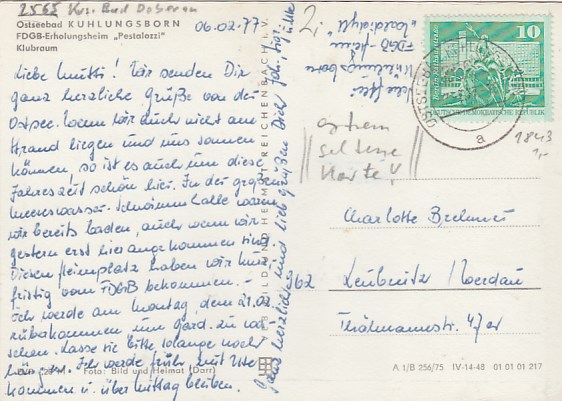 2565 Krs. Bad Doberan
Ostseebad KÜHLUNGSBORN
FDGB-Erholungsheim „Pestalozzi"
Klubraum
06.02.77
Liebe Mutti! Wir senden Dir
ganz herzliche Grüße von der
Ostsee. Wenn wir auch nicht am
Strand liegen und uns sonnen
können, so ist es auch um diese
Jahreszeit schön hier. In der großen
Meerwasser-Schwimmhalle waren
wir bereits baden, auch wenn wir
gestern erst hier angekommen sind.
Diesen Heimplatz haben wir kurz-
fristig vom FDGB bekommen.
Ich werde am Montag, dem 21.02.
zu kommen um Gard. zu wa-
schen. Lasse sie bitte solange noch
hängen. Ich werde früh mit Ute
kommen u. über Mittag bleiben.
Ganz herzlichst und lieb grüßen Dich
BILD UND HEIMAT REICHENBACH I. V.
FDGB-Heim
„Waldidyll"
Kühlungsborn
10
DEUTSCHE DEMOKRATISCHE REPUBLIK
OSTSEEBAD
a
1843
1,-
extrem
seltene
Karte!
Charlotte Brehmer
62
Leubnitz / Werdau
Thälmannstr. 47
Foto: Bild und Heimat (Dorr)
A 1/B 256/75 IV-14-48 01 01 01 217